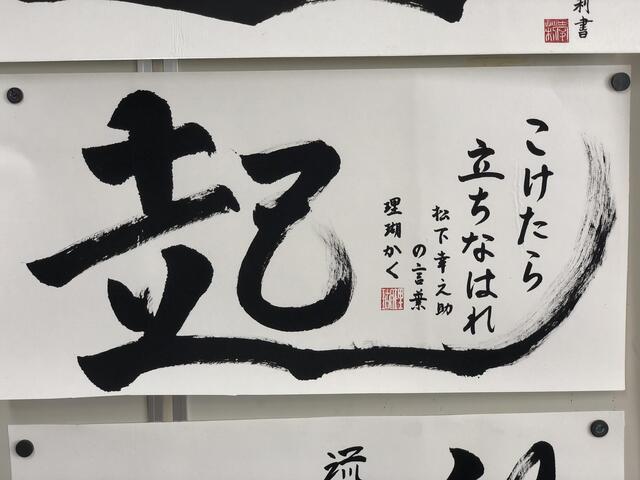 利書
起
こけたら
立ちなはれ
松下幸之助
の言葉
理瑚かく
流